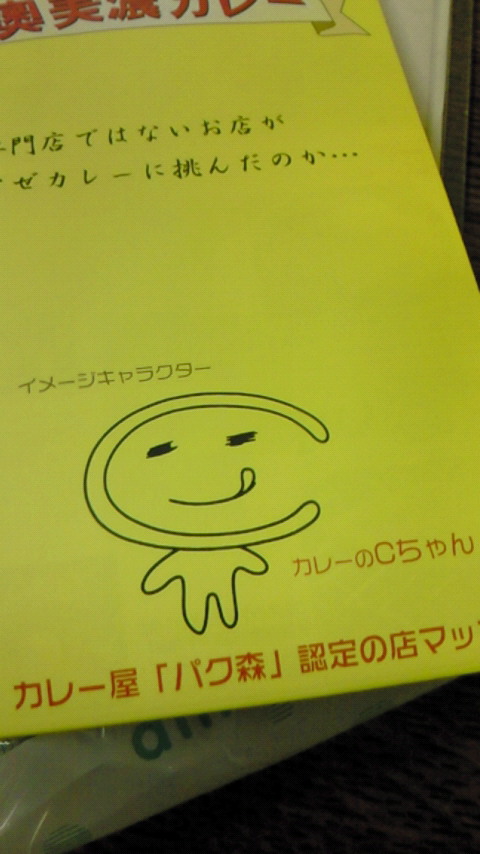 奥美濃カレー
門店ではないお店が
ゼカレーに挑んだのか…
イメージキャラクター
カレーのCちゃん
カレー屋「パク森」認定の店マッ